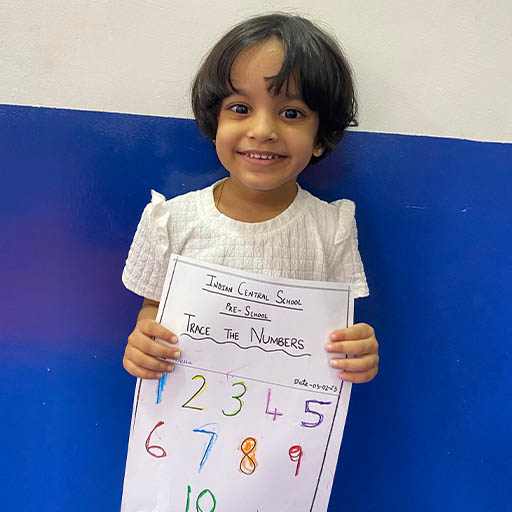 INDIAN CENTRAL SCHOOL
PRE-SCHOOL
TRACE THE NUMBERS
Date-09-02-23
1 2 3 4 5
6 7 8 9
10